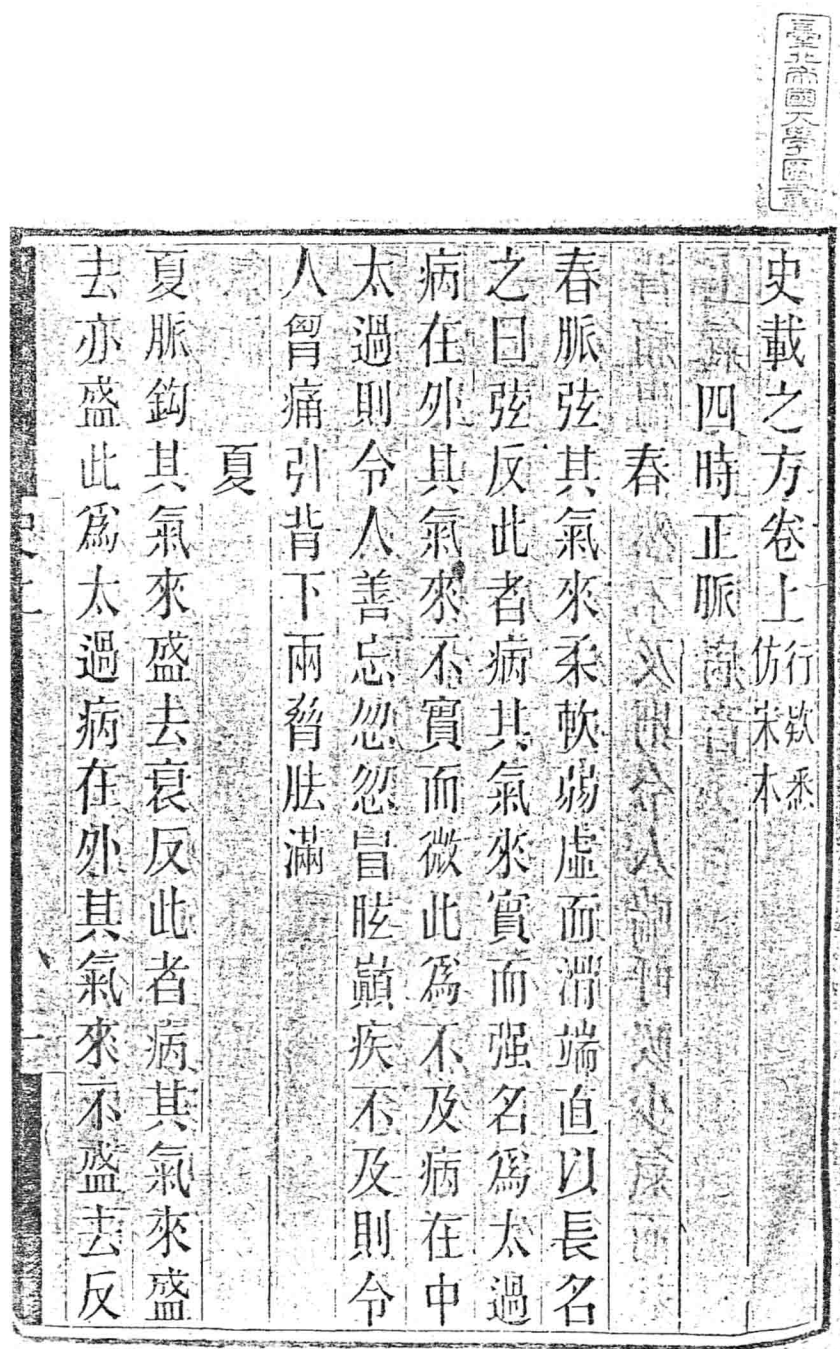 臺北帝國大學圖書
史載之方卷上 行欵悉仿宋本
四時正脈
春
春脈弦其氣來柔軟弱虛而滑端直以長名
之曰弦反此者病其氣來實而强名爲太過
病在外其氣來不實而微此爲不及病在中
太過則令人善忘忽忽冒眩巓疾不及則令
人胷痛引背下兩脅胠滿
夏
夏脈鈎其氣來盛去衰反此者病其氣來盛
去亦盛此爲太過病在外其氣來不盛去反